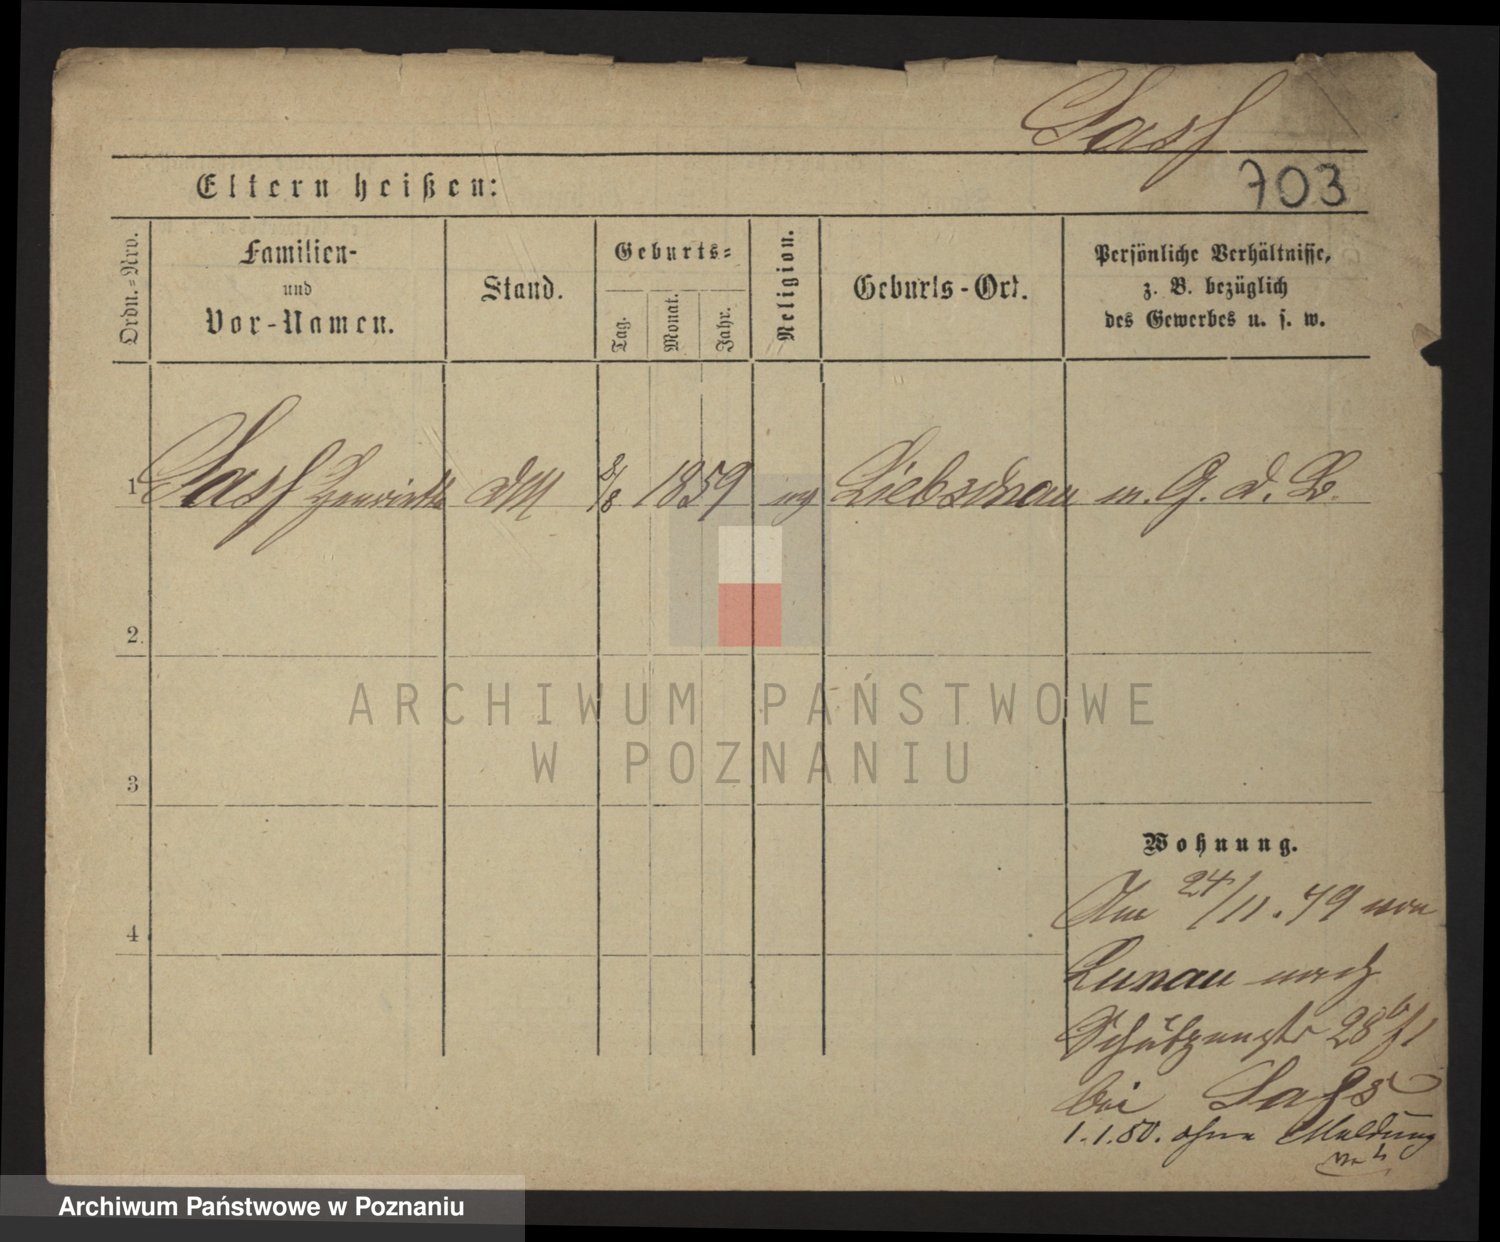 Sass
703
Eltern heißen:
Ordn.-Nro.
Familien-
und
Vor-Namen.
Stand.
Geburts-
Tag.
Monat.
Jahr.
Religion.
Geburts-Ort.
Persönliche Verhältnisse,
z. B. bezüglich
des Gewerbes u. s. w.
1 Sass Henriette 8/8 1859 Liebschau
2.
3
4
ARCHIWUM PAŃSTWOWE
W POZNANIU
Wohnung.
Am 24/11.79 von
Lunau nach
Schützenstr 28
bei
1.1.80. ohne Meldung
Archiwum Państwowe w Poznaniu